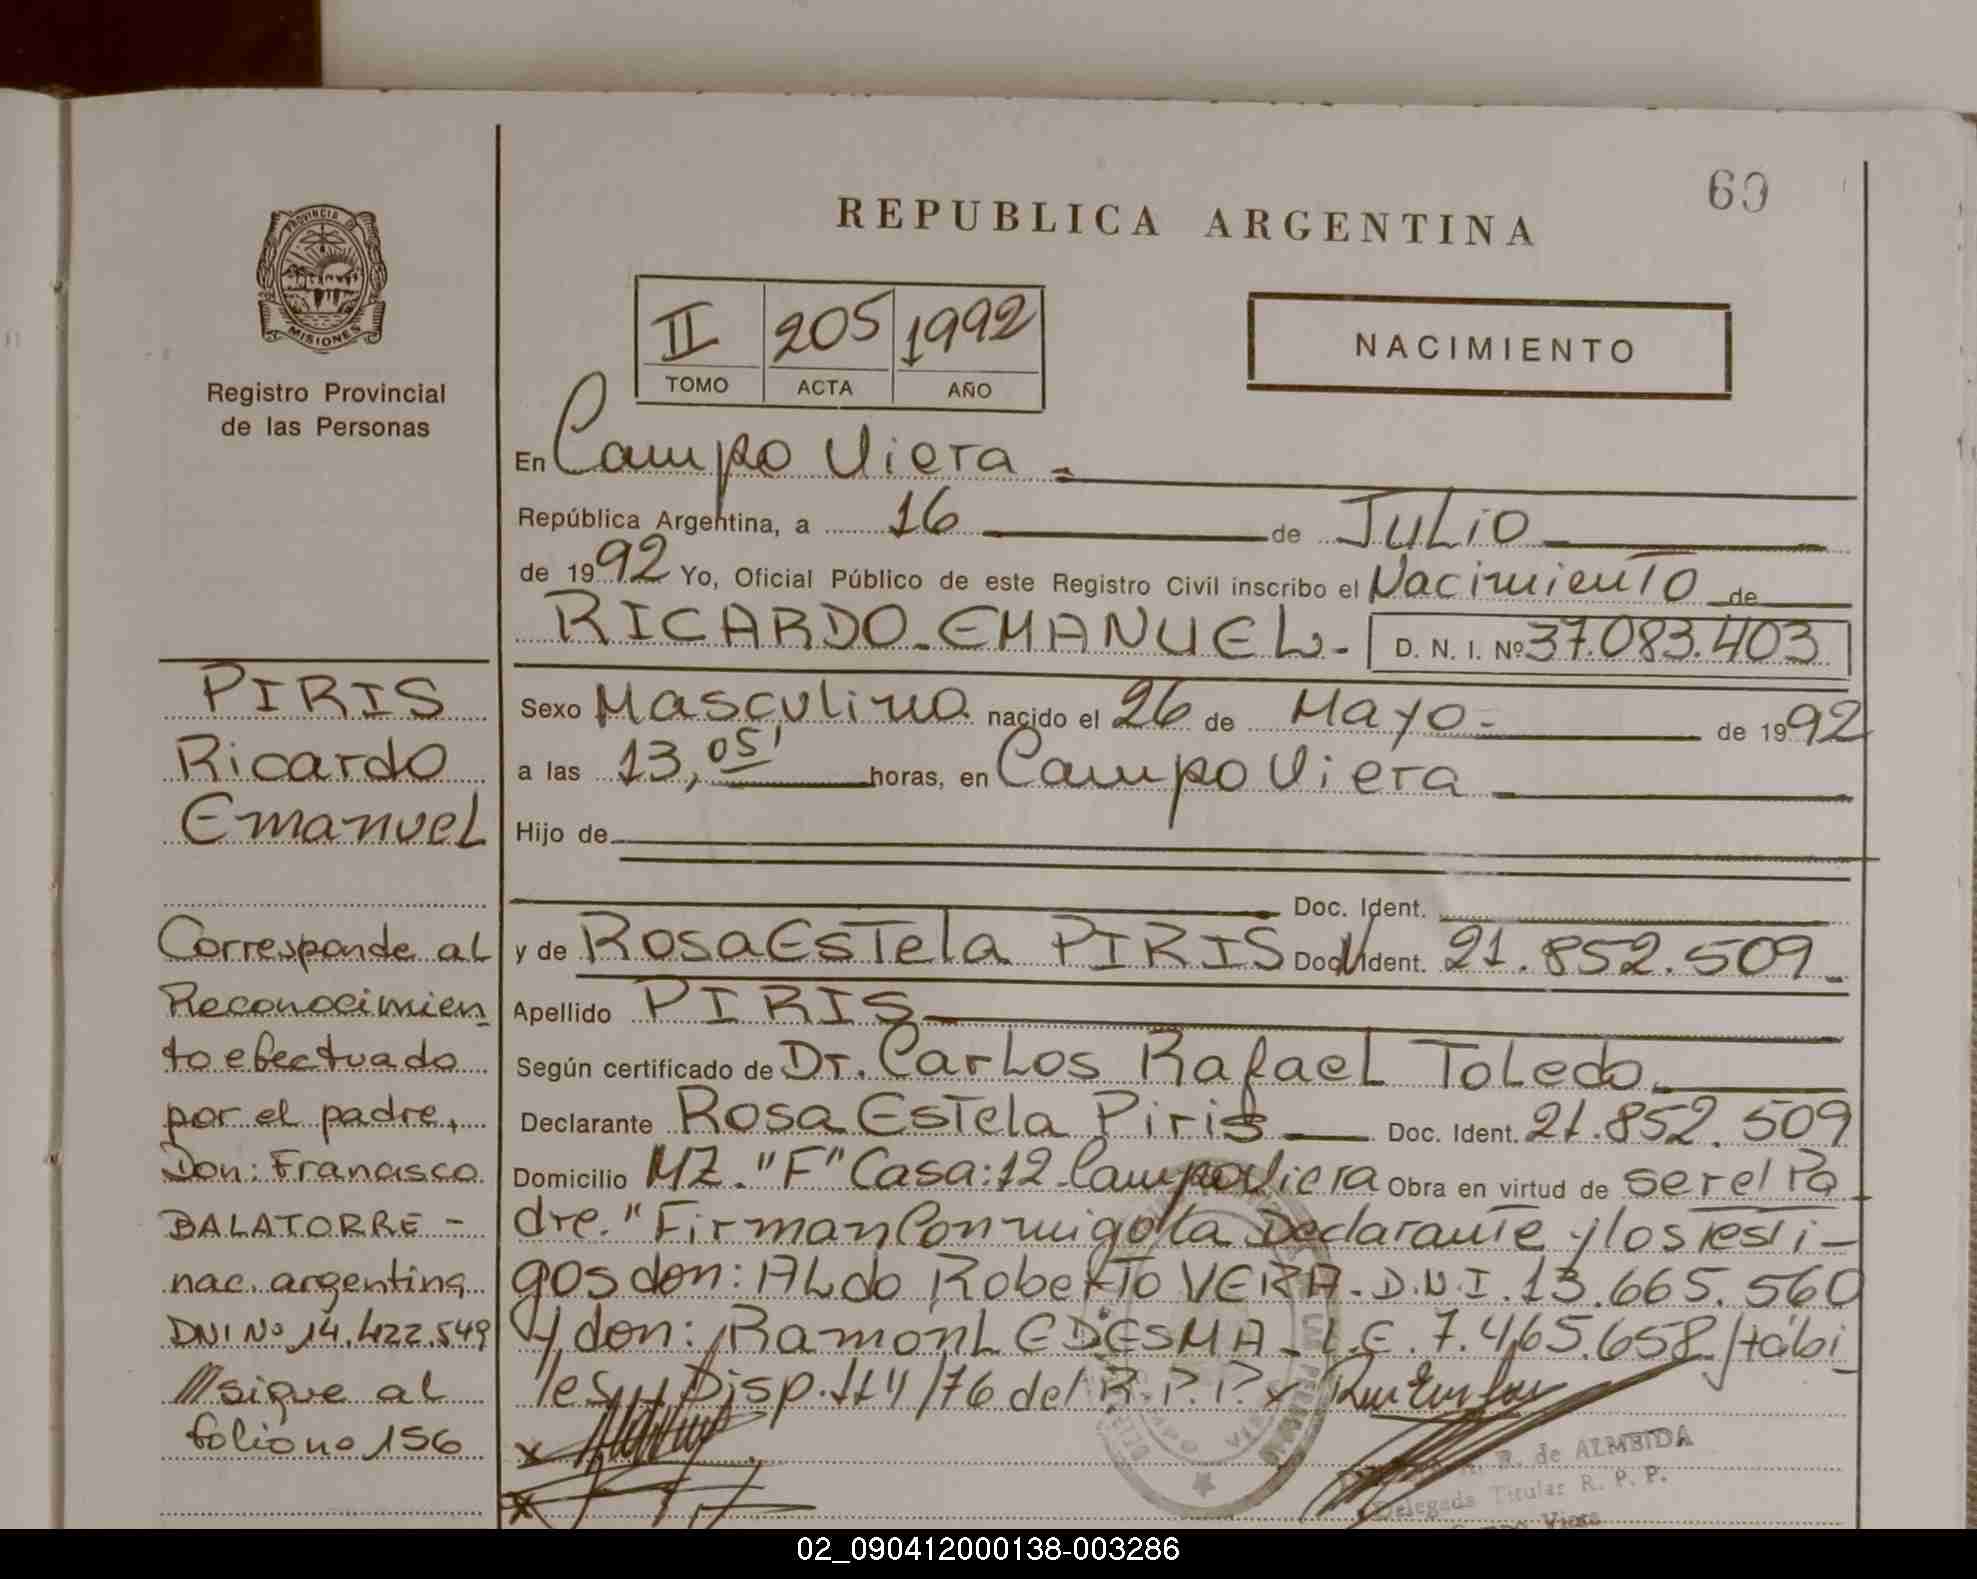 60
REPUBLICA ARGENTINA
PROVINCIA DE
MISIONES
Registro Provincial
de las Personas
II 205 1992
TOMO ACTA AÑO
NACIMIENTO
En Campo Viera
República Argentina, a 16 de JULIO
de 1992 Yo, Oficial Público de este Registro Civil inscribo el Nacimiento de
RICARDO-EMANUEL- D. N. I. Nº 37.083.403
Sexo Masculino nacido el 26 de Mayo- de 1992
a las 13,05' horas, en Campo Viera
Hijo de
Doc. Ident.
y de Rosa Estela PIRIS Doc. Ident. 21.852.509-
Apellido PIRIS
Según certificado de Dr. Carlos Rafael Toledo
Declarante Rosa Estela Piris Doc. Ident. 21.852.509
Domicilio MZ. "F" Casa:12-Campo Viera Obra en virtud de ser el Pa
dre." Firman Conmigo la Declarante y los Testi-
gos don: Aldo Roberto VERA-D.N.I.13.665.560
y don: Ramon LEDESMA-L.E.7.465.658
Disp. /76 del R.P.P.
PIRIS
Ricardo
Emanuel
Corresponde al
Reconocimien
to efectuado
por el padre,
Don: Francisco
BALATORRE-
nac. argentina
DNI Nº 14.422.549
///sigue al
folio nº 156
R. de ALMEIDA
Delegada Titular R. P. P.
Viera
02_090412000138-003286